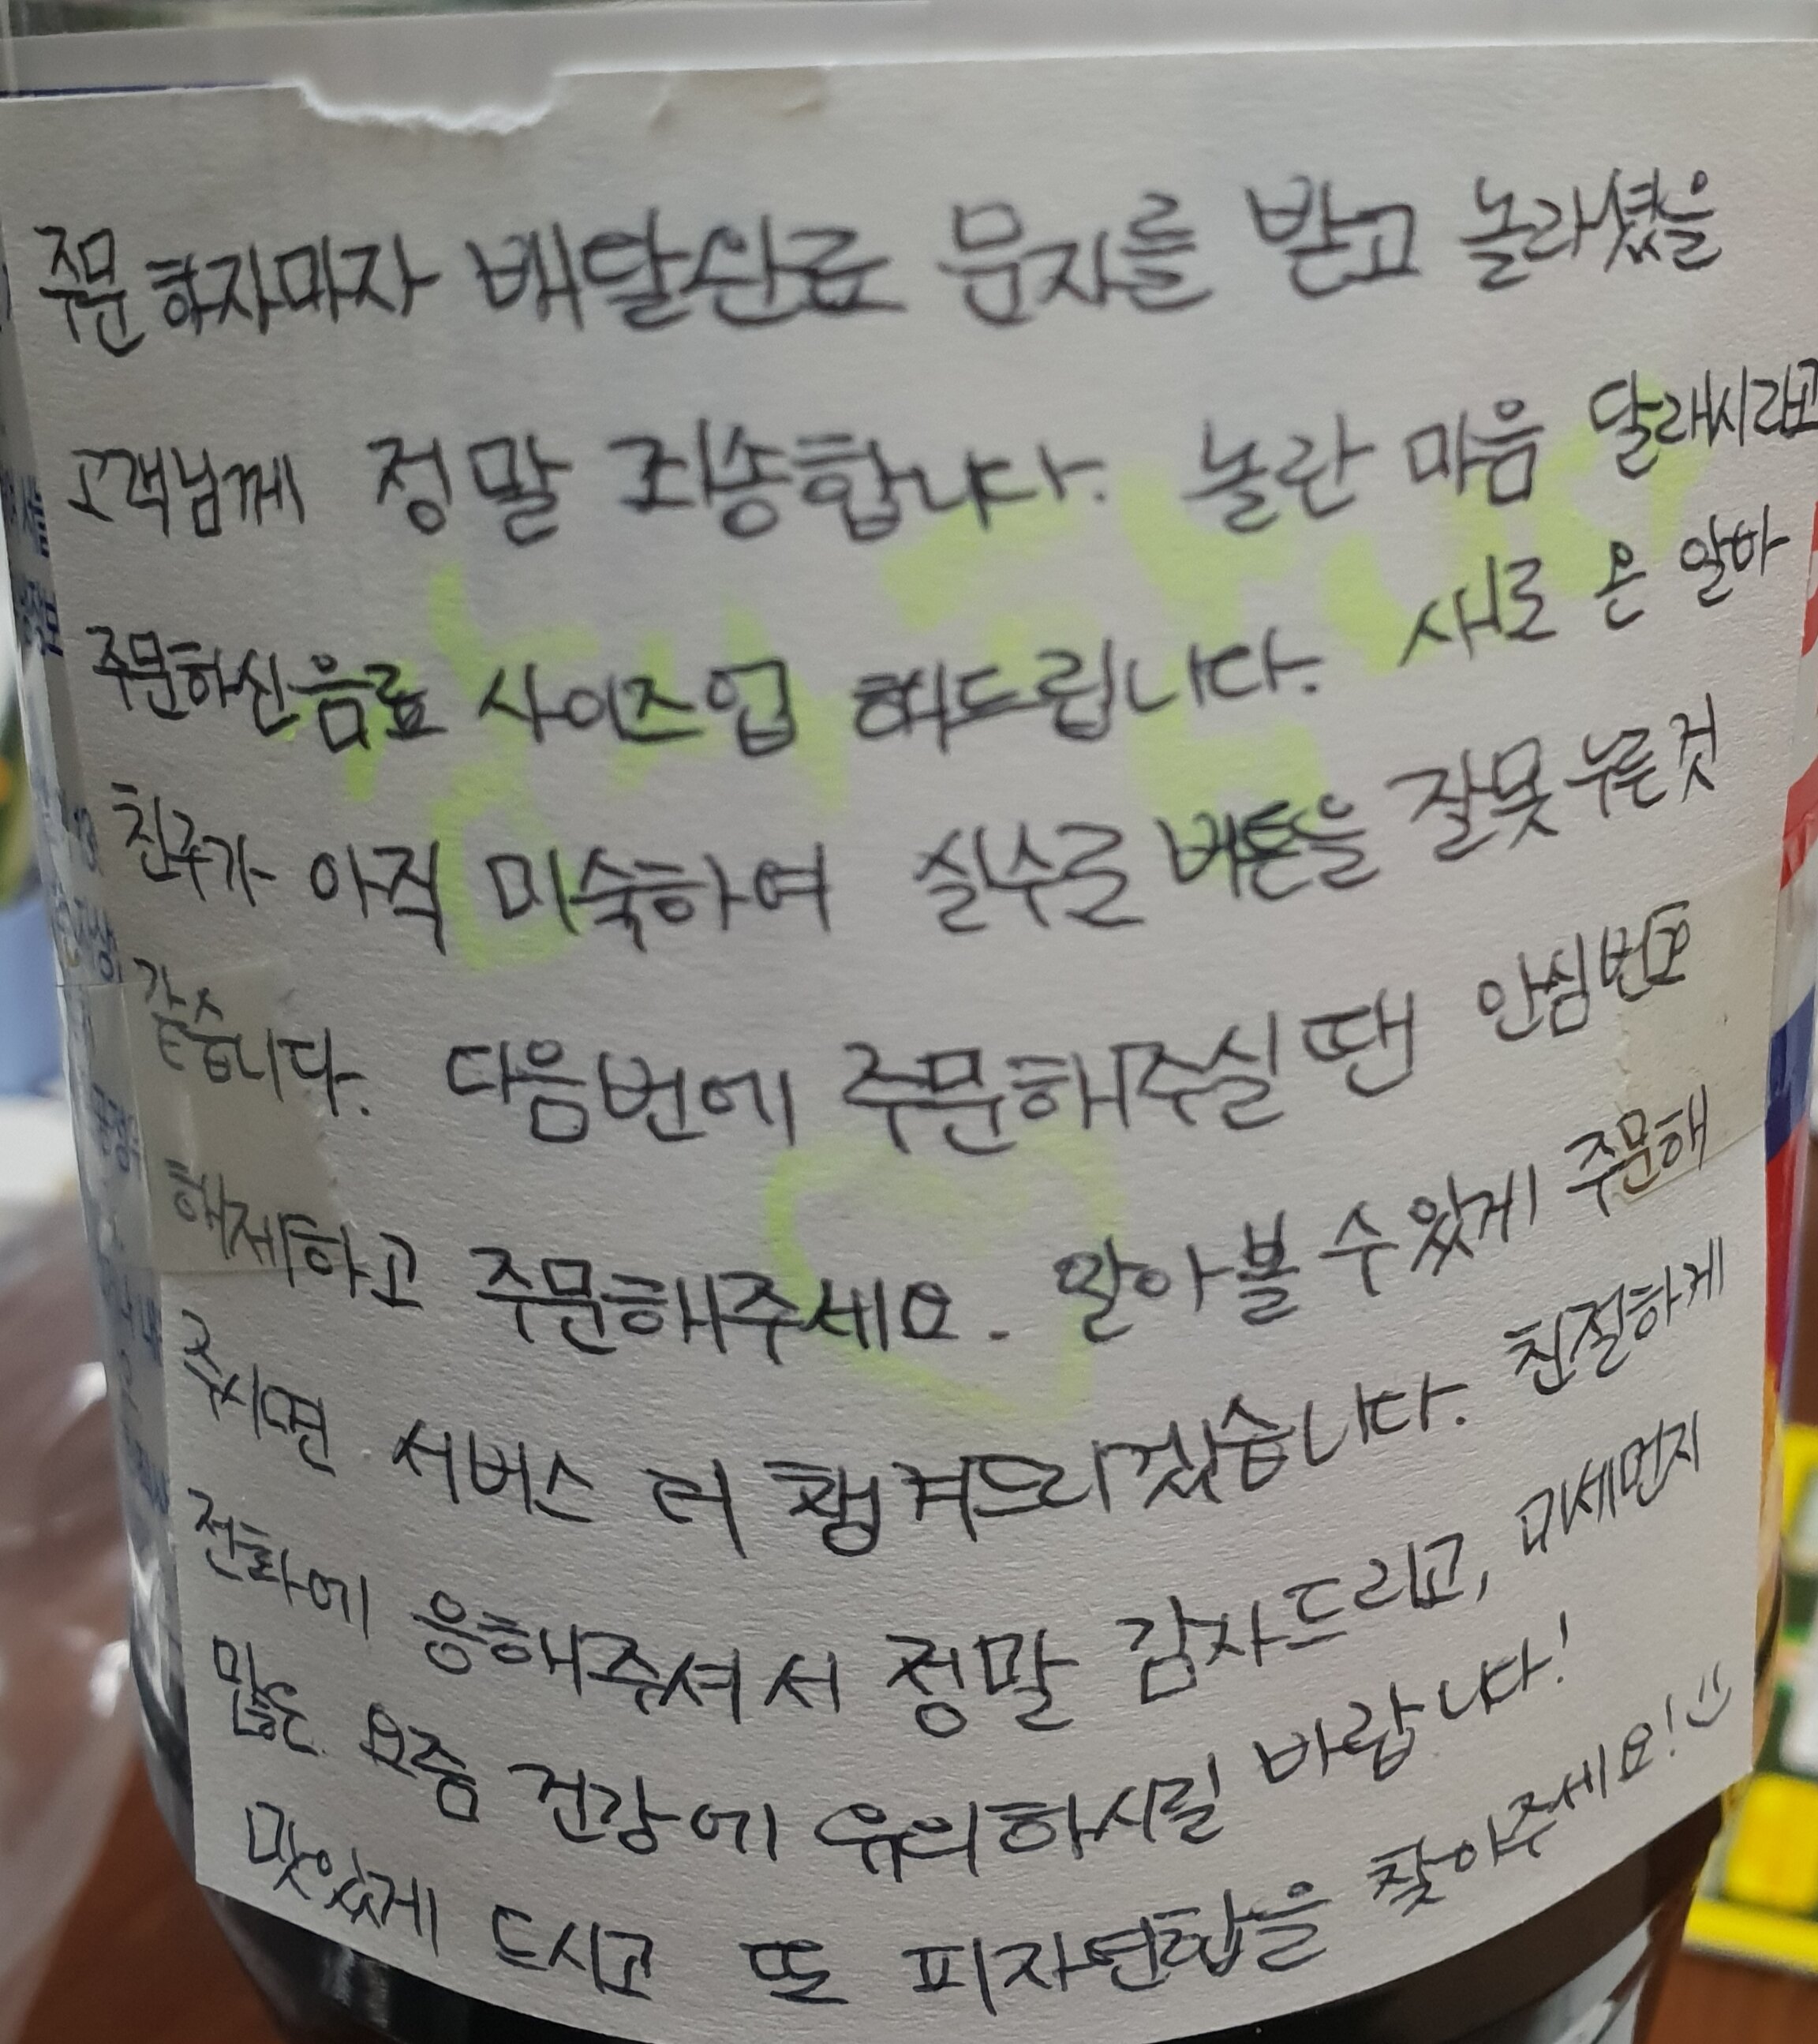 주문 하자마자 배달완료 문자를 받고 놀라셨을
고객님께 정말 죄송합니다. 놀란 마음 달래시라고
주문하신 음료 사이즈업 해드립니다. 새로 온 알바
친구가 아직 미숙하여 실수로 버튼을 잘못 누른것
같습니다. 다음번에 주문해주실 땐 안심번호
해제하고 주문해주세요. 알아볼 수 있게 주문해
주시면 서비스 더 챙겨드리겠습니다. 친절하게
전화에 응해주셔서 정말 감사드리고, 미세먼지
많은 요즘 건강에 유의하시길 바랍니다!
맛있게 드시고 또 피자연합을 찾아주세요!